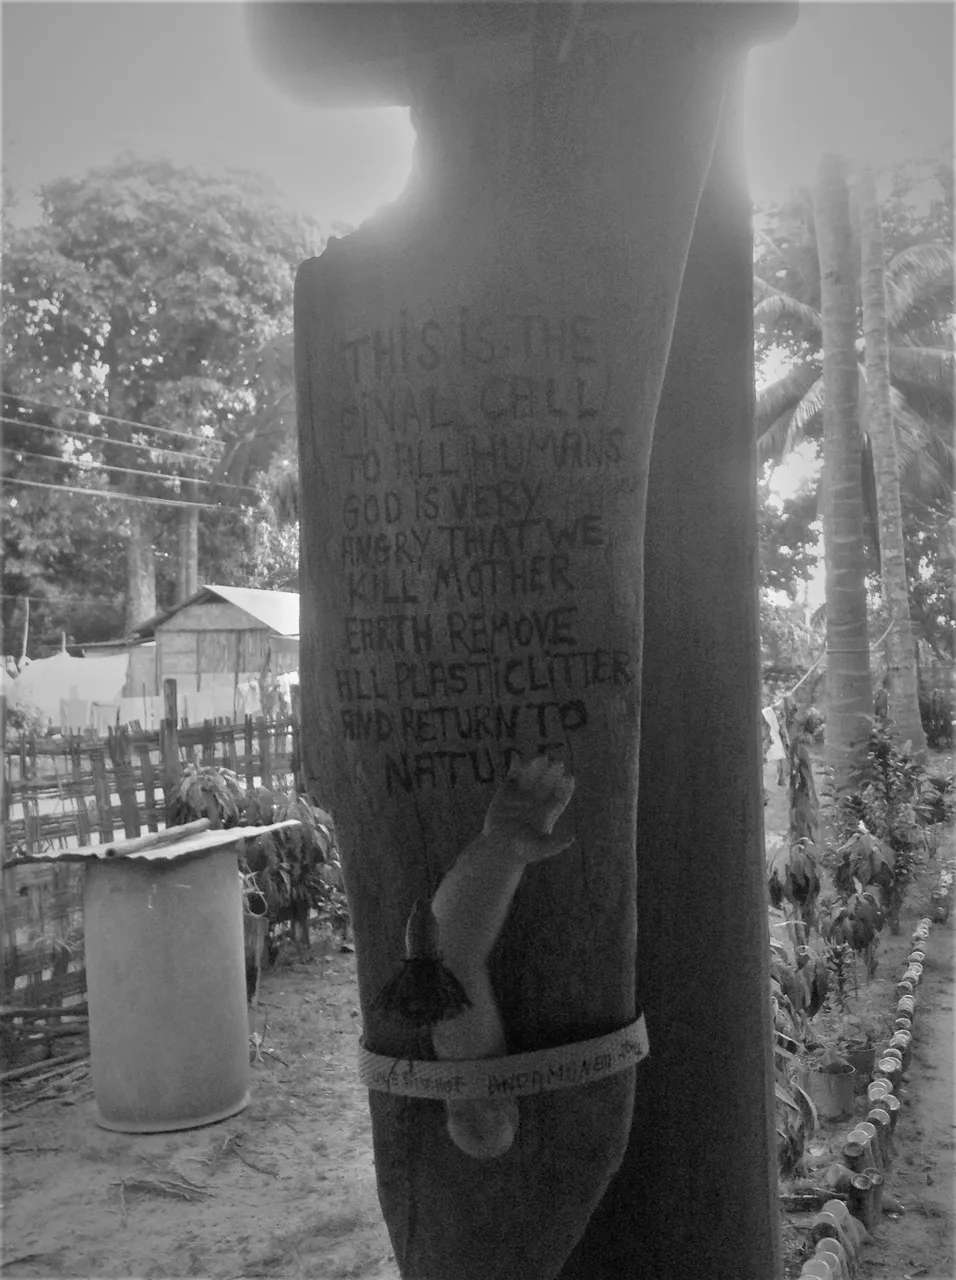 THIS IS THE
FINAL CALL
TO ALL HUMANS
GOD IS VERY
ANGRY THAT WE
KILL MOTHER
EARTH REMOVE
ALL PLASTIC LITTER
AND RETURN TO
NATURE